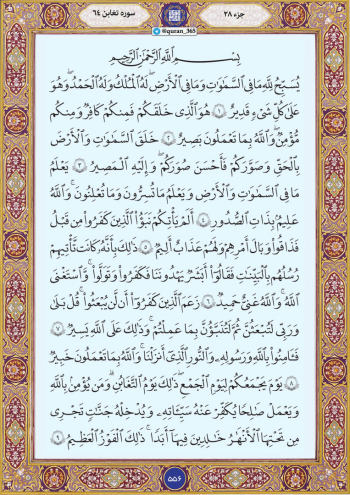 سوره تغابن ٦٤
@quran_365
جزء ٢٨
بِسْمِ ٱللَّهِ ٱلرَّحْمَٰنِ ٱلرَّحِيمِ
يُسَبِّحُ لِلَّهِ مَا فِي ٱلسَّمَٰوَٰتِ وَمَا فِي ٱلْأَرْضِۖ لَهُ ٱلْمُلْكُ وَلَهُ ٱلْحَمْدُۖ وَهُوَ
عَلَىٰ كُلِّ شَيْءٍ قَدِيرٌ ١ هُوَ ٱلَّذِي خَلَقَكُمْ فَمِنكُمْ كَافِرٌ وَمِنكُم
مُّؤْمِنٌۚ وَٱللَّهُ بِمَا تَعْمَلُونَ بَصِيرٌ ٢ خَلَقَ ٱلسَّمَٰوَٰتِ وَٱلْأَرْضَ
بِٱلْحَقِّ وَصَوَّرَكُمْ فَأَحْسَنَ صُوَرَكُمْۖ وَإِلَيْهِ ٱلْمَصِيرُ ٣ يَعْلَمُ
مَا فِي ٱلسَّمَٰوَٰتِ وَٱلْأَرْضِ وَيَعْلَمُ مَا تُسِرُّونَ وَمَا تُعْلِنُونَۚ وَٱللَّهُ
عَلِيمٌۢ بِذَاتِ ٱلصُّدُورِ ٤ أَلَمْ يَأْتِكُمْ نَبَؤُا۟ ٱلَّذِينَ كَفَرُوا۟ مِن قَبْلُ
فَذَاقُوا۟ وَبَالَ أَمْرِهِمْ وَلَهُمْ عَذَابٌ أَلِيمٌ ٥ ذَٰلِكَ بِأَنَّهُۥ كَانَت تَّأْتِيهِمْ
رُسُلُهُم بِٱلْبَيِّنَٰتِ فَقَالُوٓا۟ أَبَشَرٌ يَهْدُونَنَا فَكَفَرُوا۟ وَتَوَلَّوا۟ۚ وَّٱسْتَغْنَى
ٱللَّهُۚ وَٱللَّهُ غَنِيٌّ حَمِيدٌ ٦ زَعَمَ ٱلَّذِينَ كَفَرُوٓا۟ أَن لَّن يُبْعَثُوا۟ۚ قُلْ بَلَىٰ
وَرَبِّي لَتُبْعَثُنَّ ثُمَّ لَتُنَبَّؤُنَّ بِمَا عَمِلْتُمْۚ وَذَٰلِكَ عَلَى ٱللَّهِ يَسِيرٌ ٧
فَـَٔامِنُوا۟ بِٱللَّهِ وَرَسُولِهِۦ وَٱلنُّورِ ٱلَّذِيٓ أَنزَلْنَاۚ وَٱللَّهُ بِمَا تَعْمَلُونَ خَبِيرٌ
٨ يَوْمَ يَجْمَعُكُمْ لِيَوْمِ ٱلْجَمْعِۖ ذَٰلِكَ يَوْمُ ٱلتَّغَابُنِۗ وَمَن يُؤْمِنۢ بِٱللَّهِ
وَيَعْمَلْ صَٰلِحًا يُكَفِّرْ عَنْهُ سَيِّـَٔاتِهِۦ وَيُدْخِلْهُ جَنَّٰتٍ تَجْرِي
مِن تَحْتِهَا ٱلْأَنْهَٰرُ خَٰلِدِينَ فِيهَآ أَبَدًاۚ ذَٰلِكَ ٱلْفَوْزُ ٱلْعَظِيمُ ٩
٥٥٦